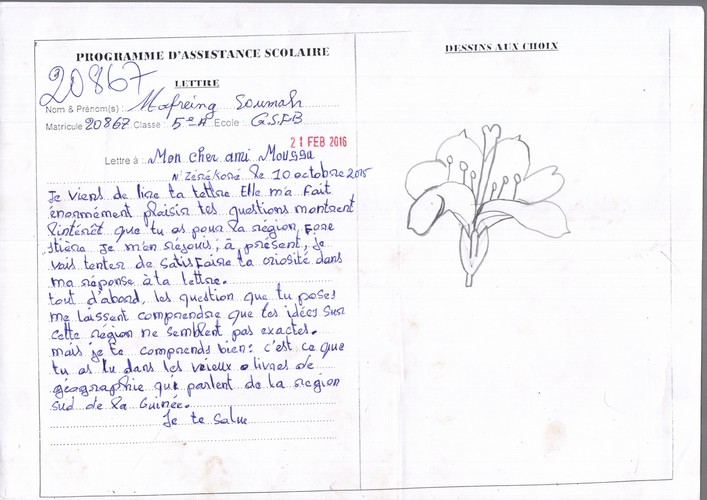 PROGRAMME D'ASSISTANCE SCOLAIRE
20867
LETTRE
Nom & Prénom(s) : Mafreing Soumah
Matricule 20867 Classe : 5e A Ecole : G.S.F.B
21 FEB 2016
Lettre à Mon cher ami Moussa
N'Zérékoré le 10 octobre 2015
Je viens de lire ta lettre Elle m'a fait
énormément plaisir tes questions montrent
l'intérêt que tu as pour la région Fore
stière Je m'en réjouis, à présent, Je
vais tenter de satisfaire ta criosité dans
ma réponse à ta lettre.
tout d'abord, les question que tu poses
me laissent comprendre que tes idées sur
cette région ne semblent pas exactes.
mais je te comprends bien : c'est ce que
tu as lu dans les vieux livres de
géographie qui parlent de la region
sud de la Guinée.
Je te salue
DESSINS AUX CHOIX